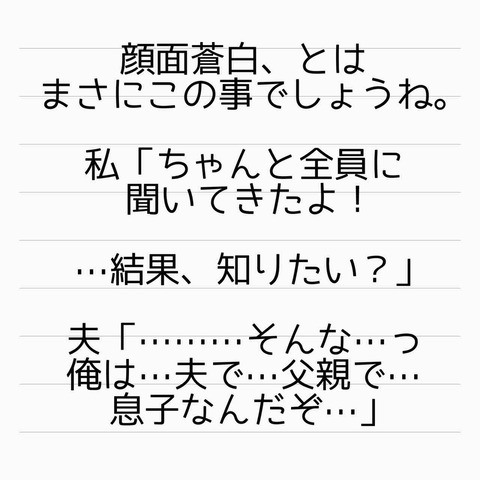 顔面蒼白、とは
まさにこの事でしょうね。
私「ちゃんと全員に
聞いてきたよ！
…結果、知りたい？」
夫「………そんな…っ
俺は…夫で…父親で…
息子なんだぞ…」